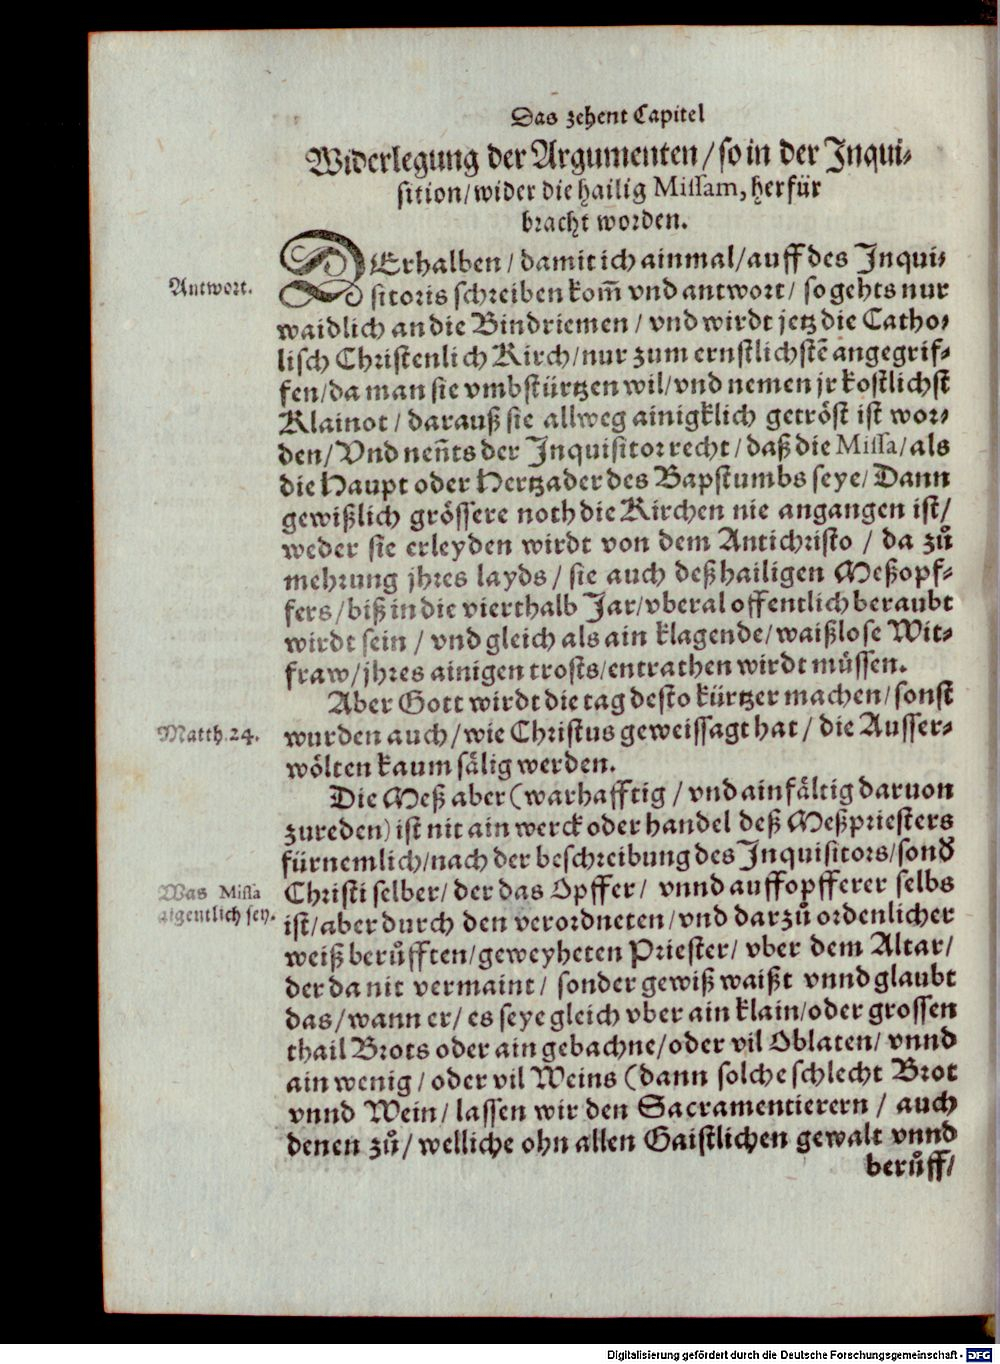 Das zehent Capitel
Widerlegung der Argumenten / so in der Inqui-
sition / wider die hailig Missam, herfür
bracht worden.
DErhalben / damit ich ainmal / auff des Inqui-
Antwort.
sitoris schreiben kom̃ vnd antwort / so gehts nur
waidlich an die Bindriemen / vnd wirdt jetz die Catho-
lisch Christenlich Kirch / nur zum ernstlichstẽ angegrif-
fen / da man sie vmbstürtzen wil / vnd nemen jr kostlichst
Klainot / darauß sie allweg ainigklich getröst ist wor-
den / Vnd neñts der Inquisitor recht / daß die Missa / als
die Haupt oder Hertzader des Bapstumbs seye / Dann
gewißlich grössere noth die Kirchen nie angangen ist /
weder sie erleyden wirdt von dem Antichristo / da zů
mehrung jhres layds / sie auch deß hailigen Meßopf-
fers / biß in die vierthalb Jar / vberal offentlich beraubt
wirdt sein / vnd gleich als ain klagende / waißlose Wit-
fraw / jhres ainigen trosts / entrathen wirdt müssen.
Aber Gott wirdt die tag desto kürtzer machen / sonst
Matth. 24.
wurden auch / wie Christus geweissagt hat / die Ausser-
wölten kaum sälig werden.
Die Meß aber (warhafftig / vnd ainfältig daruon
zureden) ist nit ain werck oder handel deß Meßpriesters
fürnemlich / nach der beschreibung des Inquisitors / sond̕
Was Missa
aigentlich sey.
Christi selber / der das Opffer / vnnd auffopfferer selbs
ist / aber durch den verordneten / vnd darzů ordenlicher
weiß berůfften / geweyheten Priester / vber dem Altar /
der da nit vermaint / sonder gewiß waißt vnnd glaubt
das / wann er / es seye gleich vber ain klain / oder grossen
thail Brots oder ain gebachne / oder vil Oblaten / vnnd
ain wenig / oder vil Weins (dann solche schlecht Brot
vnnd Wein / lassen wir den Sacramentierern / auch
denen zů / welliche ohn allen Gaistlichen gewalt vnnd
berůff /
Digitalisierung gefördert durch die Deutsche Forschungsgemeinschaft - DFG